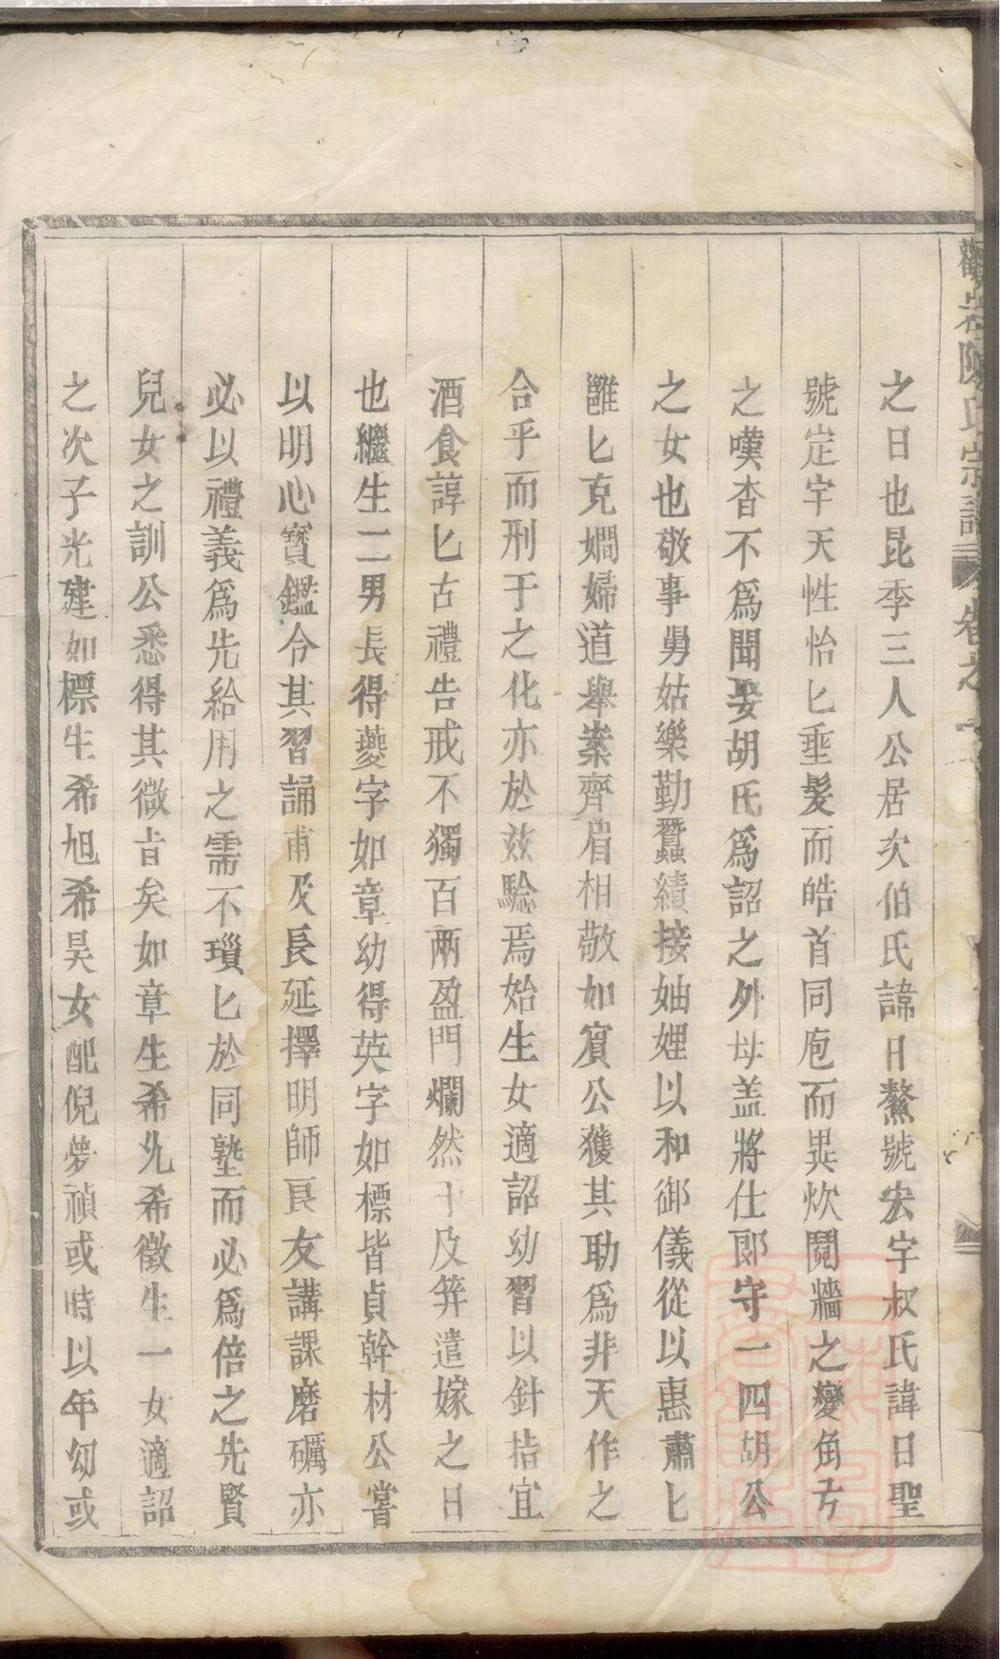 之日也昆季三人公居次伯氏諱日鰲號宏宇叔氏諱日聖
號定宇天性怡匕垂髮而皓首同庖而異炊鬩牆之變角弓
之嘆杳不為聞娶胡氏爲詔之外母盖將仕郎守一四胡公
之女也敬事舅姑樂勤蠶績接妯娌以和御儀從以惠肅匕
雝匕克嫺婦道舉案齊眉相敬如賓公獲其助爲非天作之
合乎而刑于之化亦於玆騐焉始生女適詔幼習以針指宜
酒食諄匕古禮告戒不獨百兩盈門爛然于及笄遣嫁之日
也繼生二男長得夔字如章幼得英字如標皆貞幹材公嘗
以明心寳鑑令其習誦甫及長延擇明師良友講課磨礪亦
必以禮義爲先給用之需不瑣匕於同塾而必爲倍之先賢
兒女之訓公悉得其微旨矣如章生希允希徵生一女適詔
之次子光建如標生希旭希昊女配倪夢禎或時以年幼或